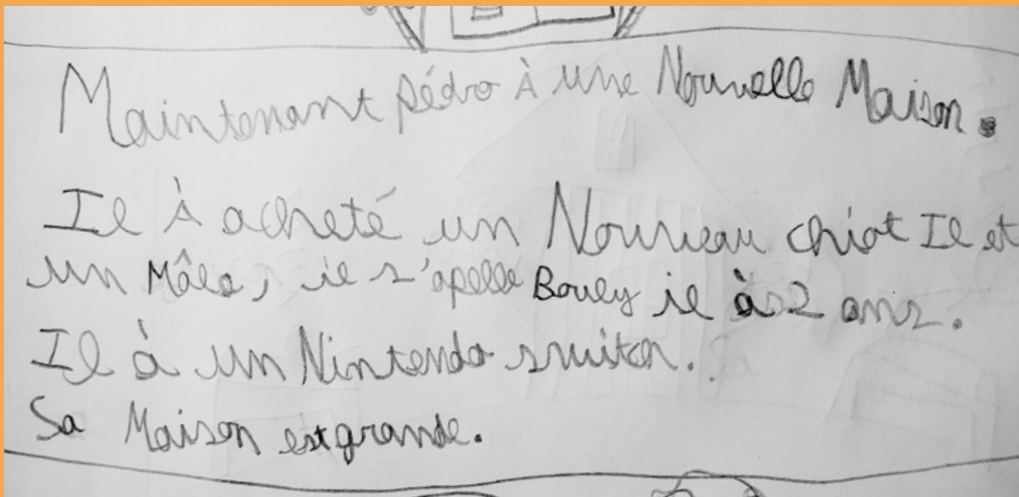 Maintenant pédro À une Nouvelle Maison.
Il À acheté un Nouveau chiot Il et
un Mâle, il s'apelle Bouly il à 2 ans.
Il à un Nintendo switch.
Sa Maison est grande.